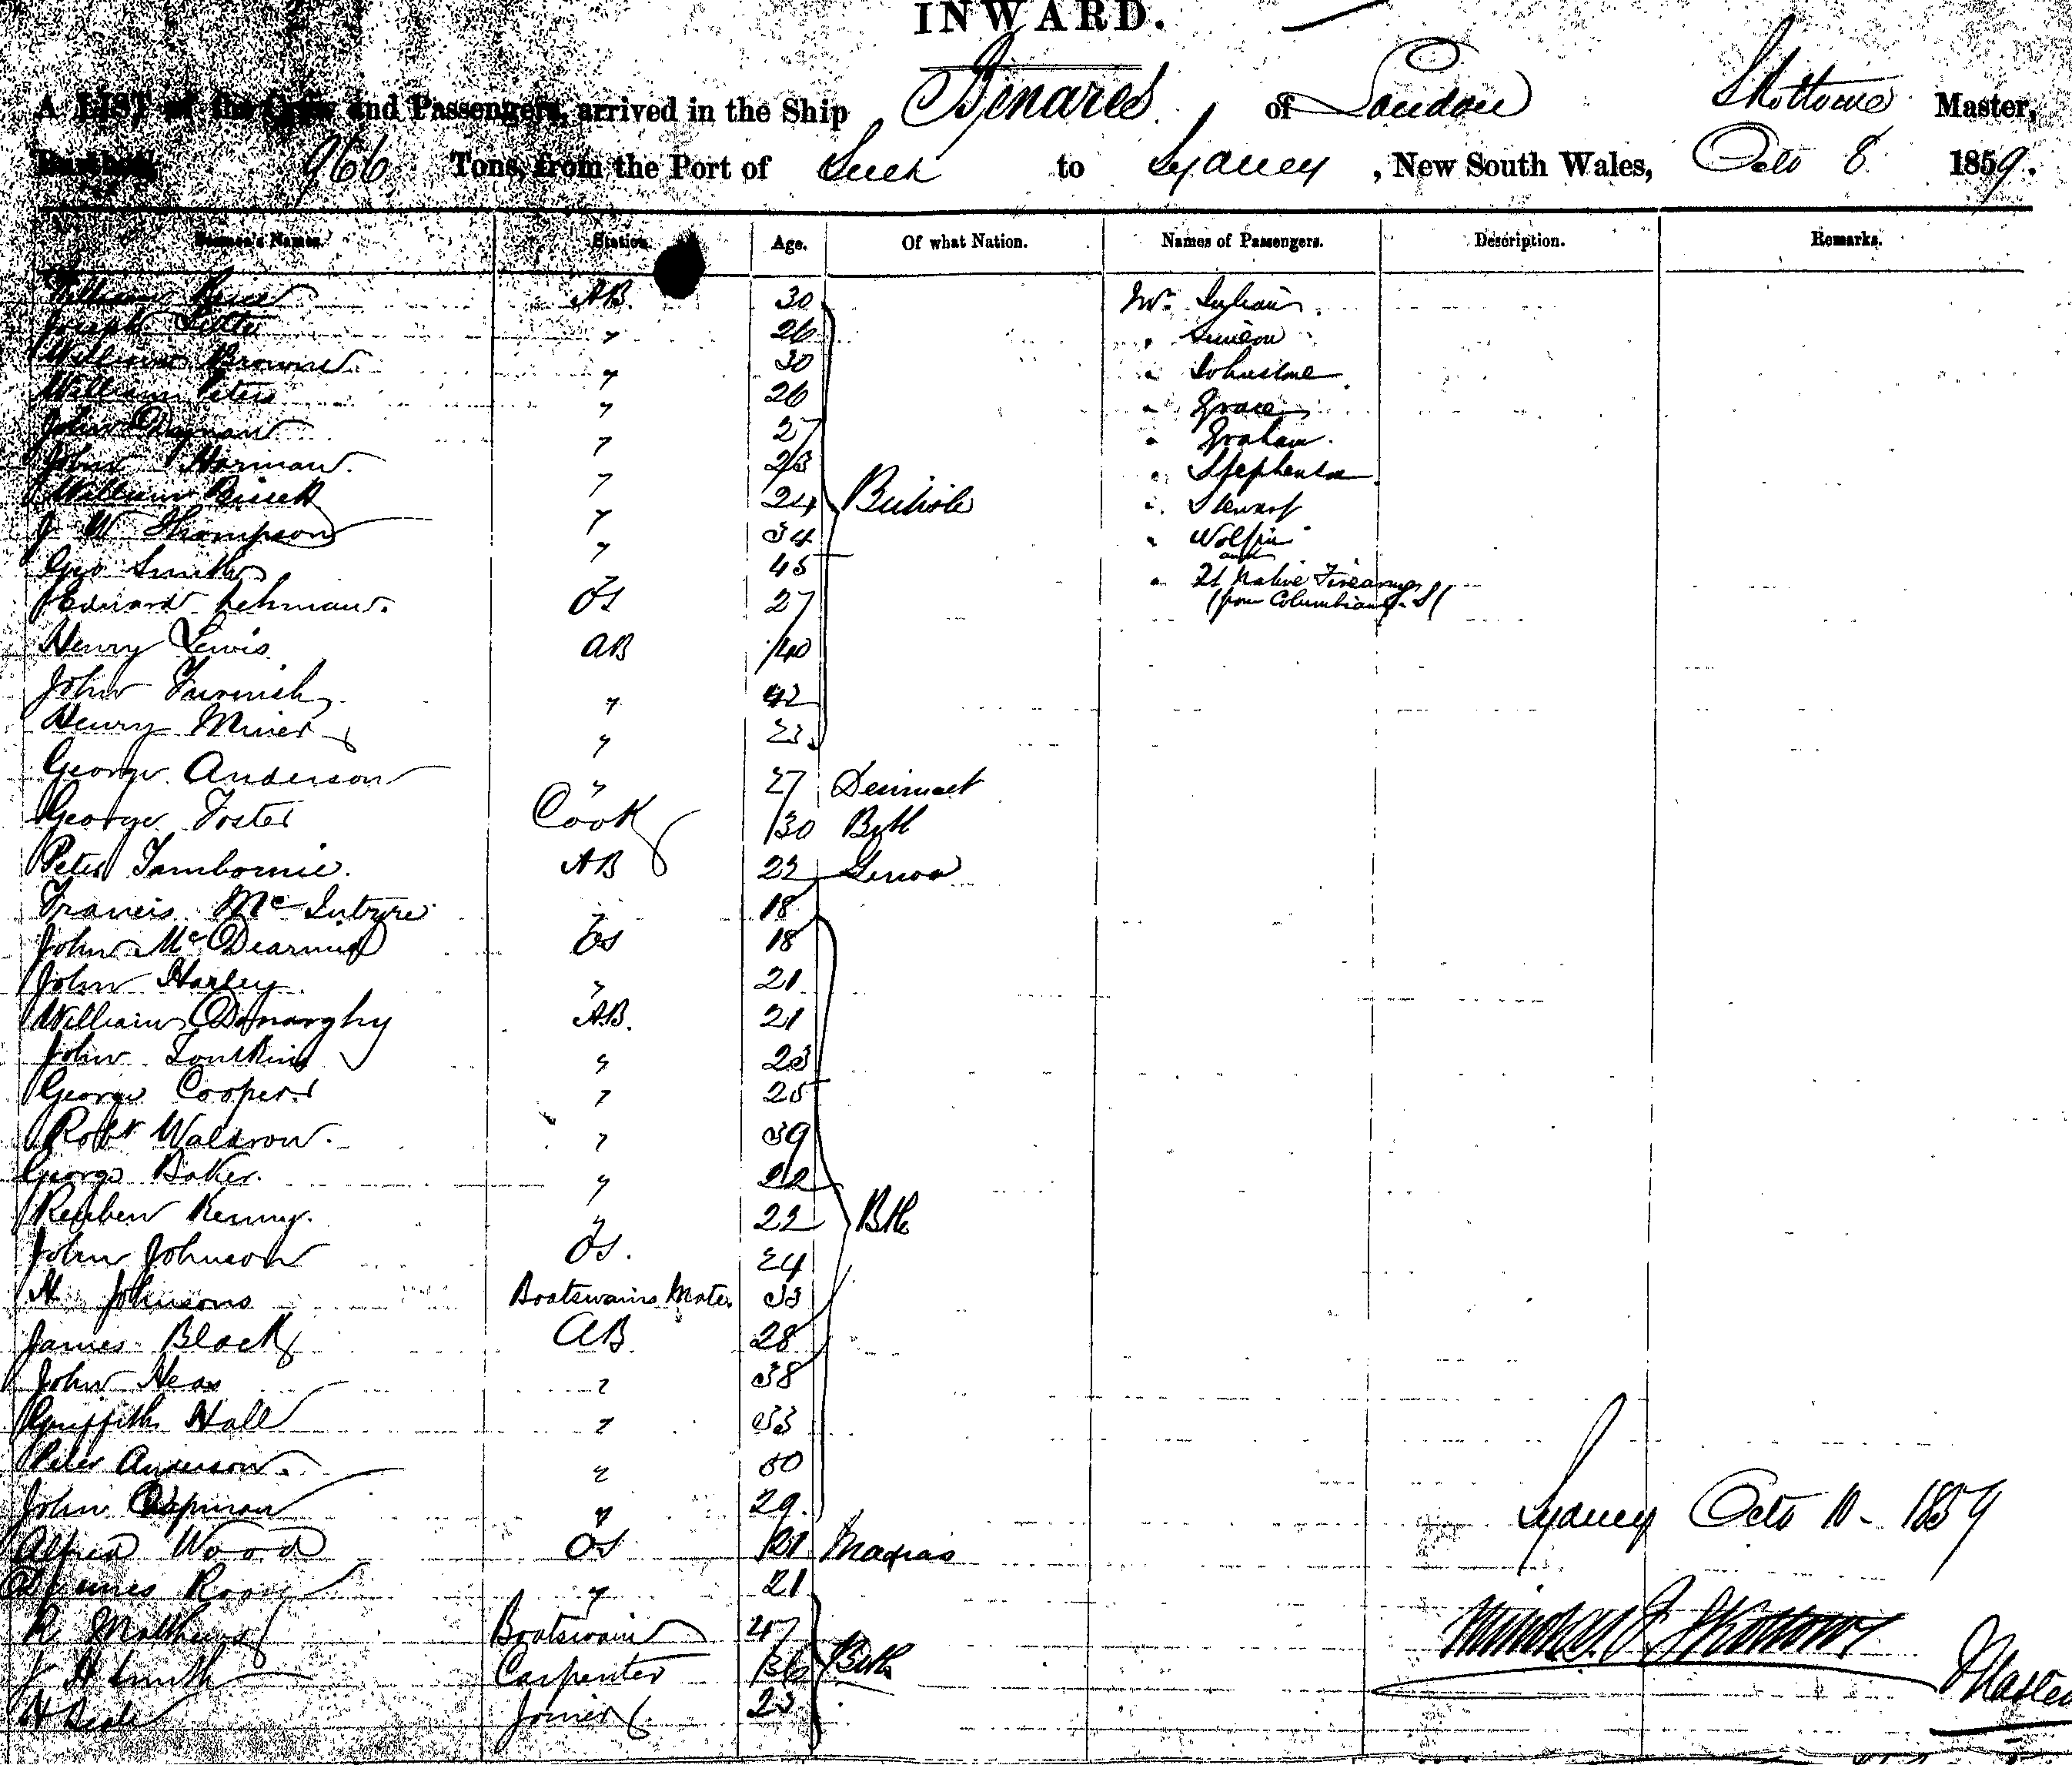 INWARD.
A LIST of the Crew and Passengers, arrived in the Ship Benares of London Skottowe Master,
Burthen 966 Tons, from the Port of Suez to Sydney, New South Wales, Octo 8 1859.
Seamen's Names. Station. Age. Of what Nation. Names of Passengers. Description. Remarks.
William AB. 30 Mr.
Joseph " 26 " Simeon
William Browne " 30 " Johnstone
William Peters " 26 " Grace
John " 27 " Graham.
John Harman. " 23 " Stephenson
William " 24 British " Stewart
J W Thompson " 34 "
Geo Smith " 45 and
" 21 Native Firemen
Edward Lehman. OS 27 (from Columbian)
Henry Lewis AB 40
John Furnish " 42
Henry Miner " 23
George Anderson " 27 Denmark
George Foster Cook 30 Btsh
Peter Tambornie. AB 22 Genoa
Francis McIntyre " 18
John McDearmid OS 18
John Harley " 21
William Donarghy AB. 21
John " 23
George Cooper " 25
Robt Waldron. " 39
George Baker. " 22
Reuben Kenny. " 22 Bth
John Johnson OS. 24
H Johnsons Boatswains Mate. 33
James Black AB 28
John " 38
Griffith Hall " 33
Peter Anderson. " 50
John Chapman " 29. Sydney Octo 10 - 1859
Alfred Wood OS 21 Madras
James " 21
R Matthews Boatswain 47 Skottowe
J H Smith Carpenter 36 Btsh Master
H Joiner 23